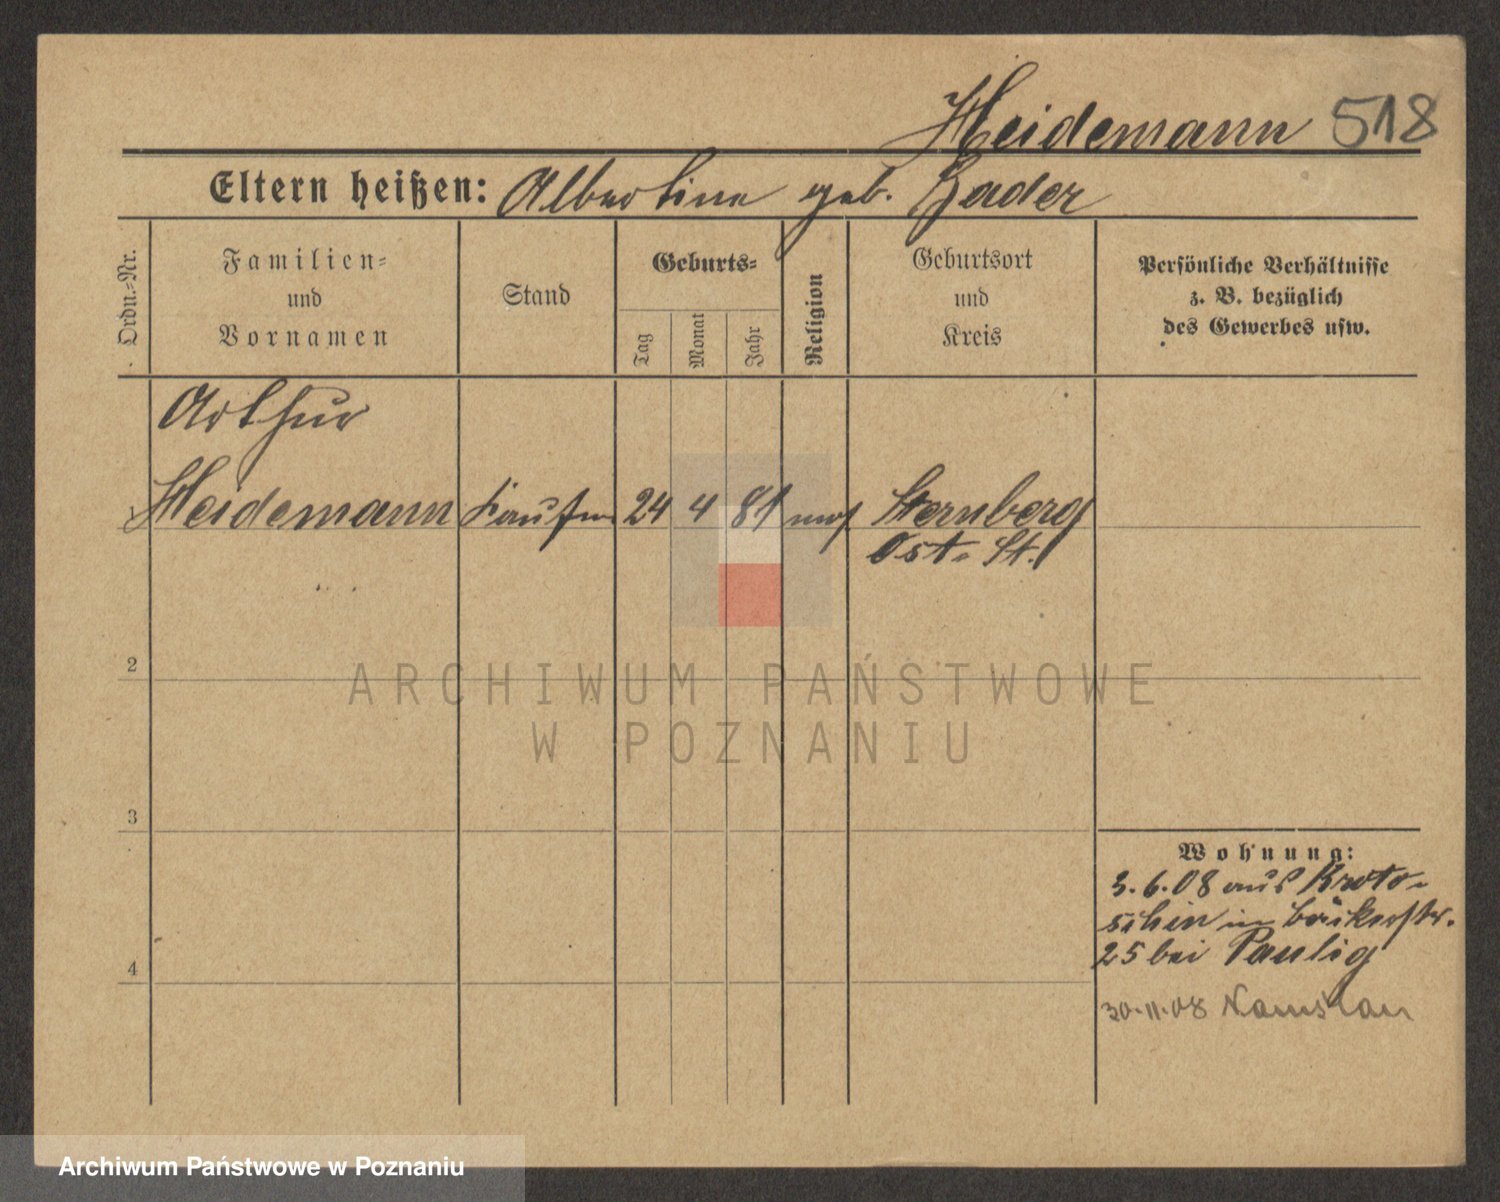 Heidemann 518
Eltern heißen: Albertine geb. Hader
Ordn.-Nr.
Familien-
und
Vornamen
Stand
Geburts-
Tag
Monat
Jahr
Religion
Geburtsort
und
Kreis
Persönliche Verhältnisse
z. B. bezüglich
des Gewerbes usw.
Arthur
Heidemann Kaufm 24 4 81 mos Sternberg
Ost-St.
2
ARCHIWUM PAŃSTWOWE
W POZNANIU
3
Wohnung:
3.6.08 aus Kroto-
schin in Bäckerstr.
25 bei Paulig
4
30.11.08 Namslau
Archiwum Państwowe w Poznaniu